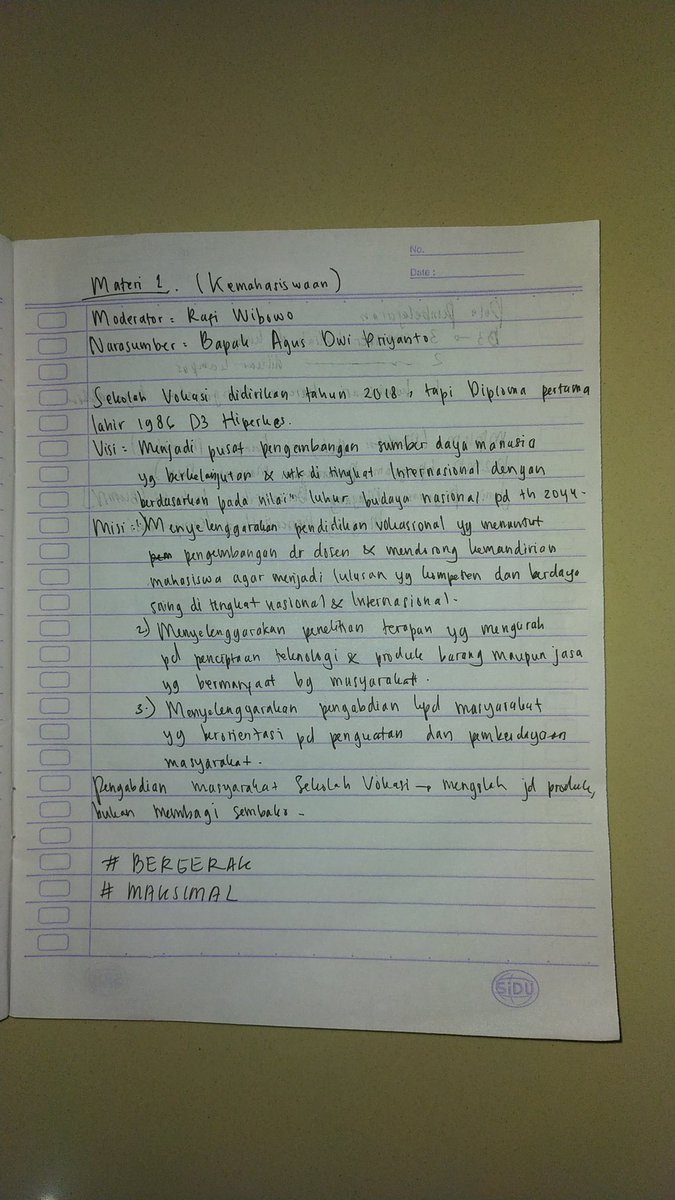 No.
Date :
Materi 1. (Kemahasiswaan)
Moderator = Rafi Wibowo
Narasumber = Bapak Agus Dwi Priyanto
Sekolah Vokasi didirikan tahun 2018, tapi Diploma pertama
lahir 1986 D3 Hiperkes.
Visi = Menjadi pusat pengembangan sumber daya manusia
yg berkelanjutan & utk di tingkat Internasional dengan
berdasarkan pada nilai" luhur budaya nasional pd th 2044.
Misi = 1) Menyelenggarakan pendidikan vokasional yg menuntut
pengembangan dr dosen & mendorong kemandirian
mahasiswa agar menjadi lulusan yg kompeten dan berdaya
saing di tingkat nasional & Internasional.
2) Menyelenggarakan penelitian terapan yg mengarah
pd penciptaan teknologi & produk barang maupun jasa
yg bermanfaat bg masyarakat.
3.) Menyelenggarakan pengabdian kpd masyarakat
yg berorientasi pd penguatan dan pemberdayaan
masyarakat.
Pengabdian masyarakat Sekolah Vokasi → mengolah jd produk,
bukan membagi sembako.
# BERGERAK
# MAKSIMAL
SiDU